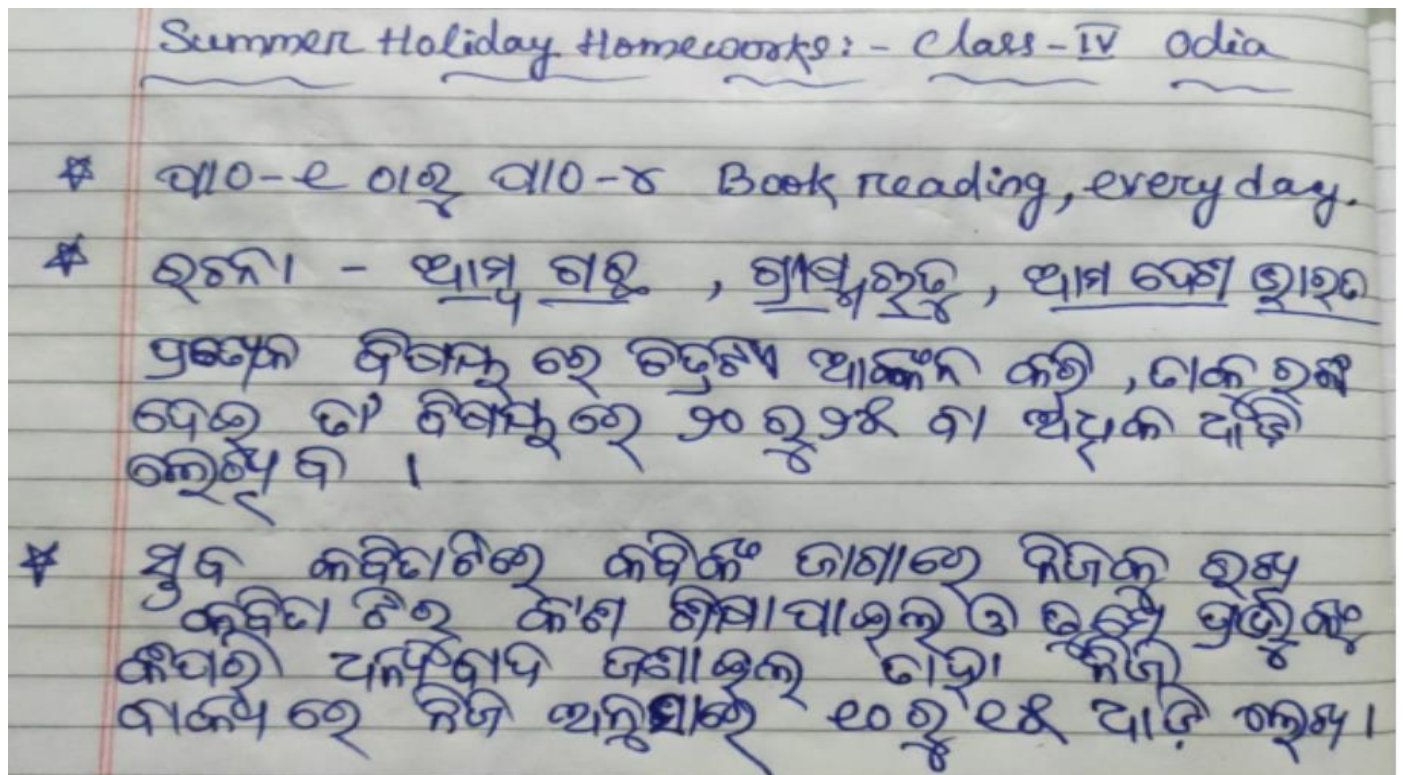 Summer Holiday Homeworks:- Class-IV Odia
ପାଠ-୧ ଠାରୁ ପାଠ-୪ Book reading, everyday.
ରଚନା - ଆମ୍ବ ଗଛ, ଗ୍ରୀଷ୍ମଋତୁ, ଆମ ଦେଶ ଭାରତ
ପ୍ରତ୍ୟେକ ବିଷୟ ରେ ଚିତ୍ରଟିଏ ଆଙ୍କନ କରି, ତାକୁ ରଙ୍ଗ
ଦେଇ ତା' ବିଷୟ ରେ ୨୦ ରୁ ୨୫ ବା ଅଧିକ ଧାଡ଼ି
ଲେଖିବ ।
ସ୍ତବ କବିତାଟିରେ କବିଙ୍କ ଜାଗାରେ ନିଜକୁ ରଖି
କବିତା ଟିରୁ କ'ଣ ଶିକ୍ଷା ପାଇଲ ଓ ତୁମେ ପ୍ରଭୁଙ୍କୁ
କିପରି ଧନ୍ୟବାଦ ଜଣାଇଲ ତାହା ନିଜ
ବାକ୍ୟ ରେ ନିଜ ଅନୁସାରେ ୧୦ ରୁ ୧୫ ଧାଡ଼ି ଲେଖ ।